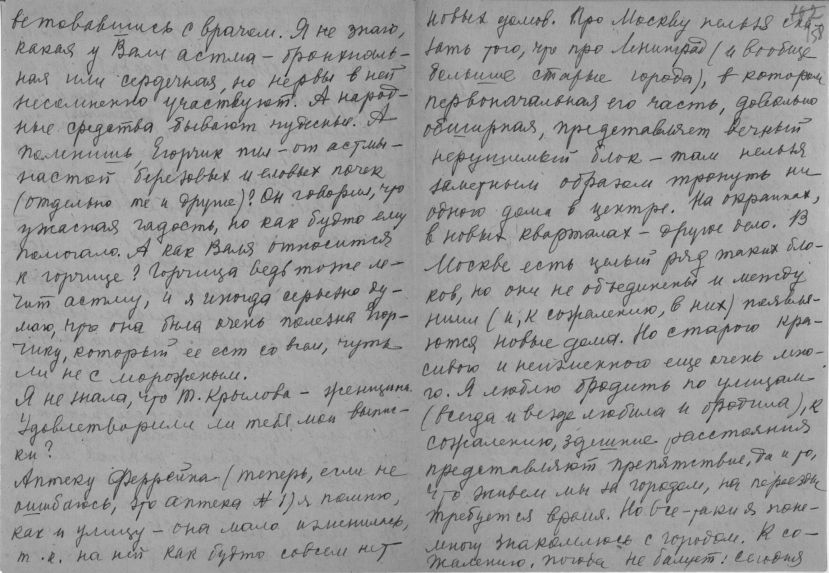 ветовавшись с врачом. Я не знаю,
какая у Вали астма – бронхиаль-
ная или сердечная, но нервы в ней
несомненно участвуют. А народ-
ные средства бывают нужные. А
помнишь Егорчик пил – от астмы –
настой березовых и еловых почек
(отдельно те и другие)? Он говорил, что
ужасная гадость, но как будто ему
помогало. А как Валя относится
к горчице? Горчица ведь тоже ле-
чит астму, и я иногда серьезно ду-
маю, что она была очень полезна Егор-
чику, который ее ест со всем, чуть
ли не с мороженым.
Я не знала, что Т. Крылова – женщина.
Удовлетворили ли тебя мои выпис-
ки?
Аптеку Феррейна (теперь, если не
ошибаюсь, это аптека № 1) я помню,
как и улицу – она мало изменилась,
т.к. на ней как будто совсем нет
новых домов. Про Москву нельзя ска-
зать того, что про Ленинград (и вообще
большие старые города), в котором
первоначальная его часть, довольно
обширная, представляет вечный
нерушимый блок – там нельзя
заметным образом тронуть ни
одного дома в центре. На окраинах,
в новых кварталах – другое дело. В
Москве есть целый ряд таких бло-
ков, но они не объединены и между
ними (и, к сожалению, в них) появля-
ются новые дома. Но старого кра-
сивого и неизменного еще очень мно-
го. Я люблю бродить по улицам
(всегда и везде любила и бродила), к
сожалению, здешние расстояния
представляют препятствие, да и то,
что живем мы за городом, на переезды
требуется время. Но все-таки я поне-
многу знакомлюсь с городом. К со-
жалению, погода не балует: сегодня